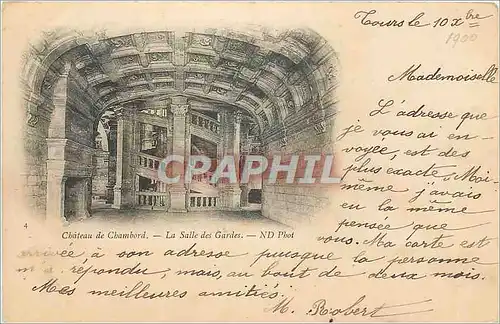 Tours le 10 Xbre
1900
Mademoiselle
L'adresse que
je vous ai en-
voyée, est des
plus exacte. Moi
même j'avais
eu la même
pensée que
vous. Ma carte est
arrivée à son adresse puisque la personne
m'a répondu, mais, au bout de deux mois.
Mes meilleures amitiés.
M. Robert
CRAPHIL
4
Château de Chambord. — La Salle des Gardes. — ND Phot